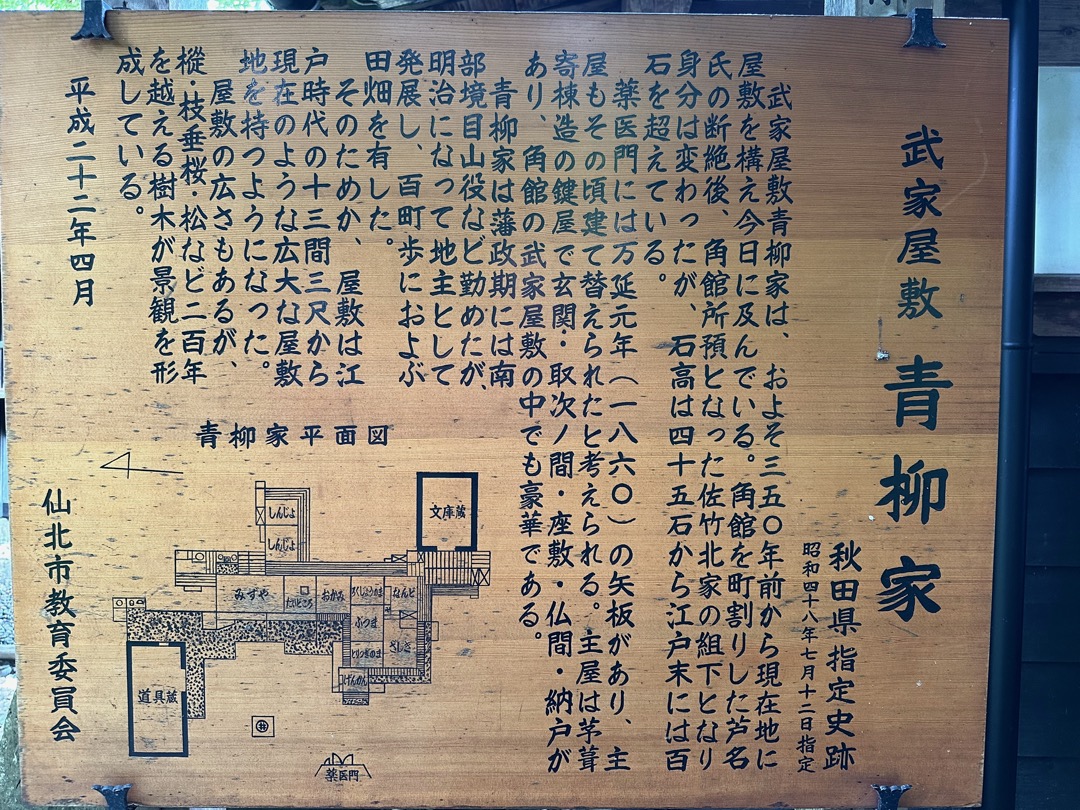 武家屋敷 青柳家
秋田県指定史跡
昭和四十八年七月十二日指定
武家屋敷青柳家は、およそ三五〇年前から現在地に
屋敷を構え今日に及んでいる。角館を町割りした芦名
氏の断絶後、角館所預となった佐竹北家の組下となり
身分は変わったが、石高は四十五石から江戸末には百
石を超えている。
薬医門には万延元年（一八六〇）の矢板があり、主
屋もその頃建て替えられたと考えられる。主屋は茅葺
寄棟造の鍵屋で玄関・取次ノ間・座敷・仏間・納戸が
あり、角館の武家屋敷の中でも豪華である。
青柳家は藩政期には南
部境目山役など勤めたが、
明治になって地主として
発展し、百町歩におよぶ
田畑を有した。
そのためか、屋敷は江
戸時代の十三間三尺から
現在のような広大な屋敷
地を持つようになった。
屋敷の広さもあるが、
樅・枝垂桜・松など二百年
を越える樹木が景観を形
成している。
平成二十二年四月
仙北市教育委員会
青柳家平面図
しんじょ
しんじょ
文庫蔵
みずや
だいどころ
おかみ
なんど
ぶつま
ざしき
とりつぎのま
げんかん
道具蔵
井
薬医門